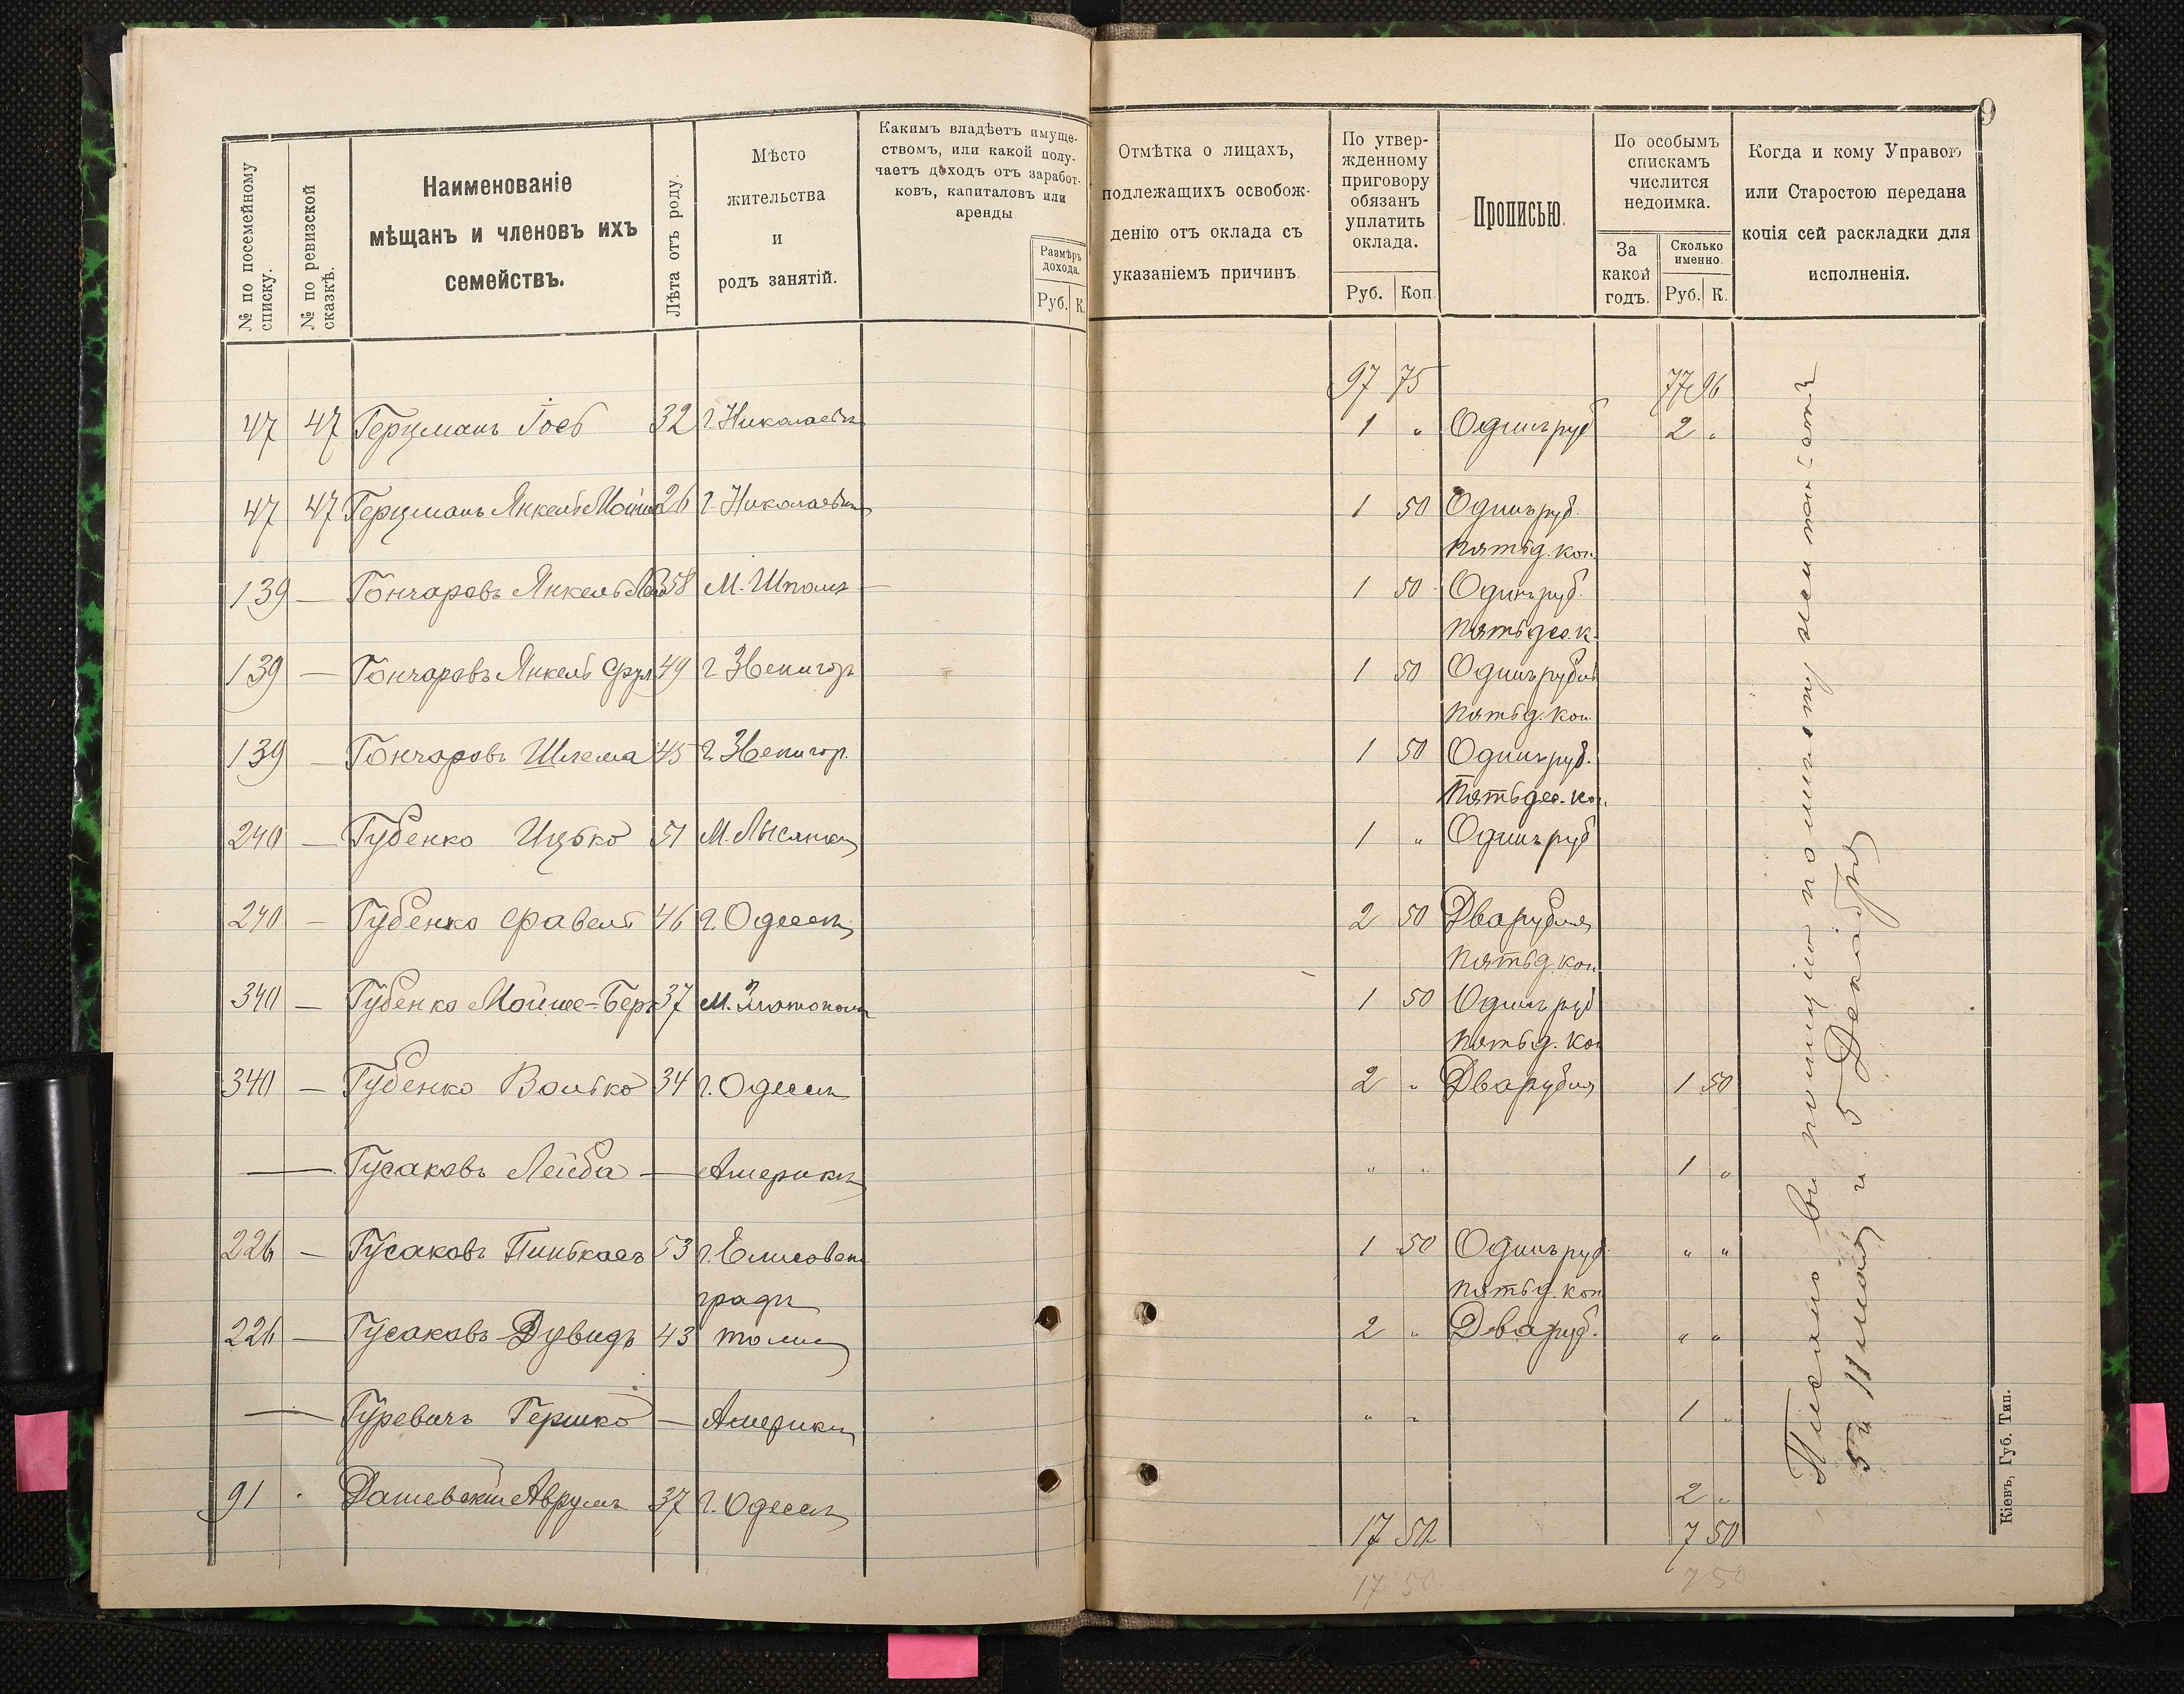 9
№ по посемейному списку.
№ по ревизской сказкѣ.
Наименованіе
мѣщанъ и членовъ ихъ
семействъ.
Лѣта отъ роду.
Мѣсто
жительства
и
родъ занятій.
Какимъ владѣетъ имуще-
ствомъ, или какой полу-
чаетъ доходъ отъ заработ-
ковъ, капиталовъ или
аренды
Размѣръ
дохода.
Руб. К.
Отмѣтка о лицахъ,
подлежащихъ освобож-
денію отъ оклада съ
указаніемъ причинъ.
По утвер-
жденному
приговору
обязанъ
уплатить
оклада.
Руб. Коп.
Прописью.
По особымъ
спискамъ
числится
недоимка.
За
какой
годъ.
Сколько
именно.
Руб. К.
Когда и кому Управою
или Старостою передана
копія сей раскладки для
исполненія.
97 75 77 96
47 47 Герцманъ Іосъ 32 г. Николаевъ 1 " Одинъ руб 2 "
47 47 Герцманъ Янкель Мойше 26 г. Николаевъ 1 50 Одинъ руб.
пятьд. коп.
139 — Гончаровъ Янкель 58 М. Шпола 1 50 Одинъ руб.
пятьдес. к.
139 — Гончаровъ Янкель Срул 49 г Звенигор 1 50 Одинъ рубль
пятьд. коп.
139 — Гончаровъ Шлема 45 г. Звенигор. 1 50 Одинъ руб.
Пятьдес. коп.
240 — Губенко Ицько 51 М. Лысянка 1 " Одинъ руб
240 — Губенко Файвель 46 г. Одесса 2 50 Два рубля
пятьд. коп.
340 — Губенко Мойше-Берк 37 М. Златополь 1 50 Одинъ руб
пятьд. коп
340 — Губенко Волько 34 г. Одесса 2 " Два рубля 1 50
— Гусаковъ Лейба — Америка " " 1 "
226 — Гусаковъ Пинькасъ 53 г. Елисавет 1 50 Одинъ руб. " "
градъ пятьд. коп
226 — Гусаковъ Дувидъ 43 тоже 2 " Два руб. " "
— Гуревичъ Гершко — Америка " " 1 "
91 Дашевскій Аврумъ 37 г. Одесса 2 "
17 50 7 50
17 50 7 50
5 Декабря
Кіевъ, Губ. Тип.